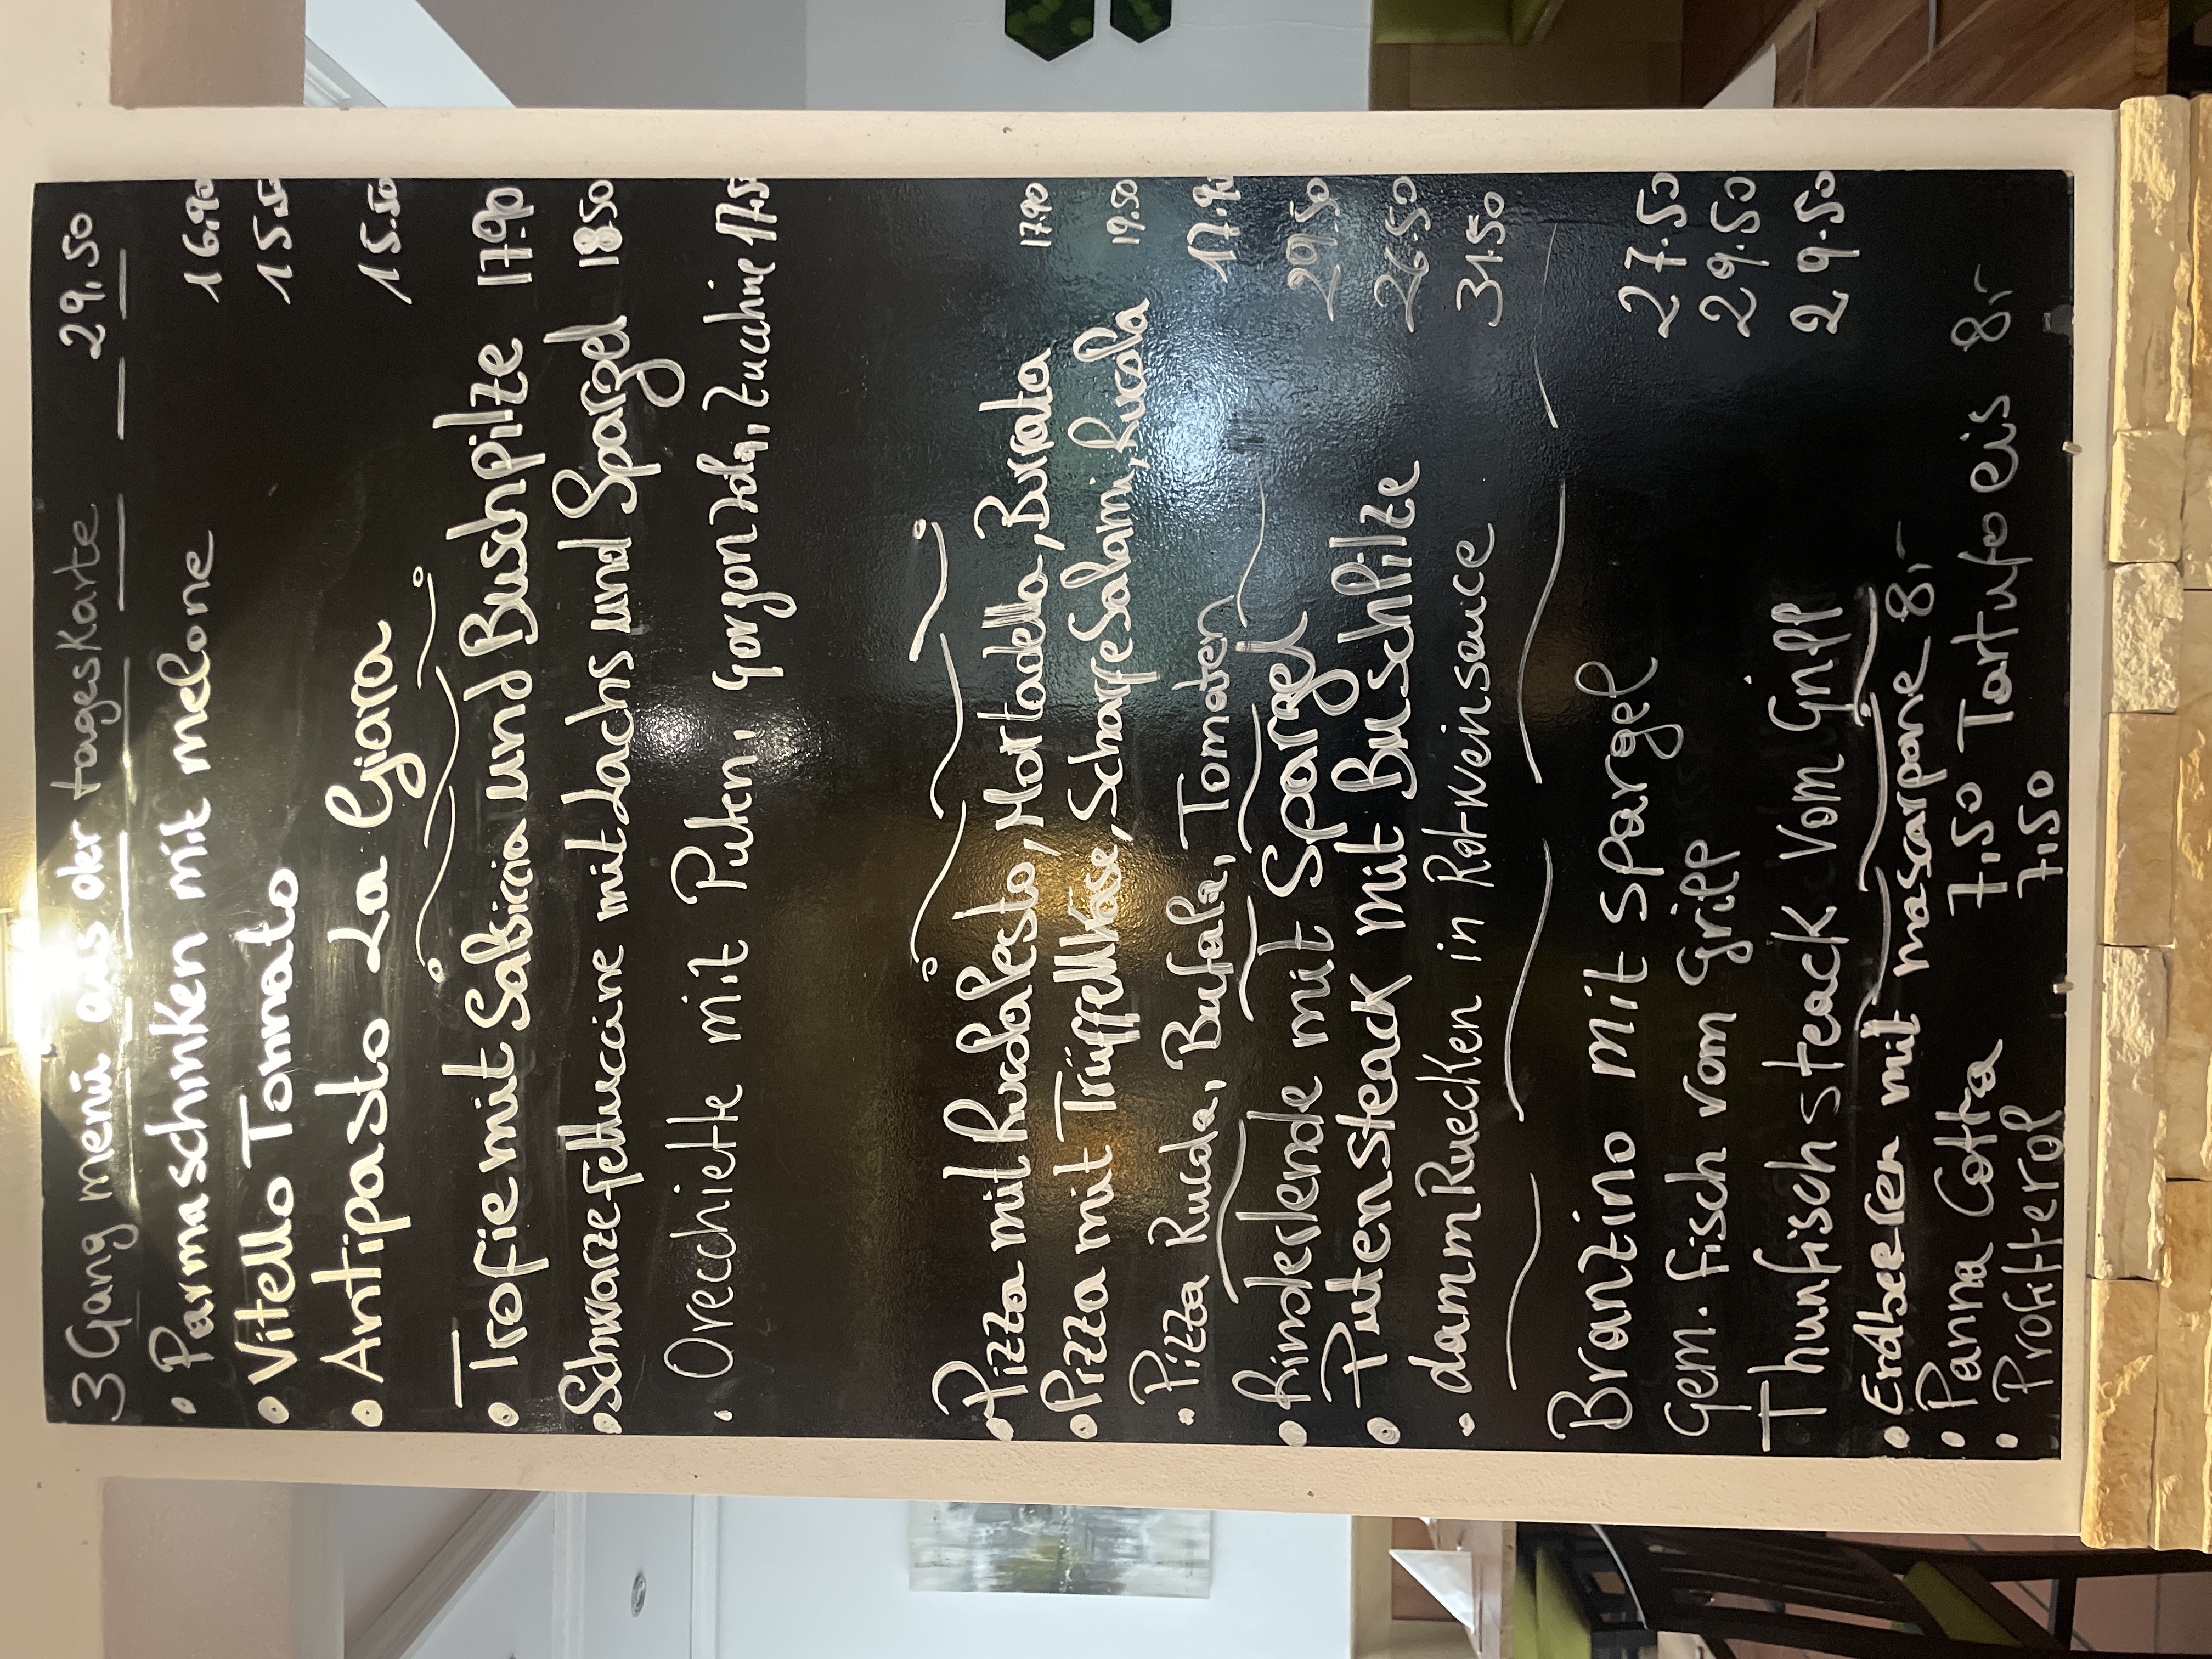 3 Gang menü aus der tageskarte 29,50
• Parmaschinken mit melone 16,90
• Vitello Tonnato 15,50
• Antipasto La Giara 15.50
• Trofie mit Salsicia und Buschpilze 17.90
• Schwarze Fettuccine mit Lachs und Spargel 18.50
• Orecchiette mit Puten, Gorgonzola, Zucchine 17.50
• Pizza mit Rucola Pesto, Mortadella, Burrata 17.90
• Pizza mit Trüffelkäse, Scharfe Salami, Rucola 19.50
• Pizza Rucola, Bufala, Tomaten 17.90
• Rinderlende mit Spargel 29.50
• Putensteack mit Buschpilze 26.50
• LammRuecken in Rotweinsauce 31.50
Branzino mit spargel 27.50
Gem. Fisch vom Grill 29.50
Thunfischsteack vom Grill 29.50
• Erdbeeren mit mascarpone 8,-
• Panna Cotta 7,50 Tartufo eis 8,-
• Profitterol 7,50